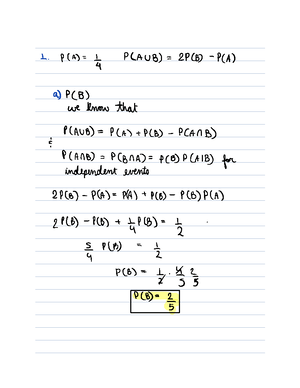 1. P(A) = 1/4 P(A∪B) = 2P(B) - P(A)
a) P(B)
we know that
P(A∪B) = P(A) + P(B) - P(A∩B)
&
P(A∩B) = P(B∩A) = P(B) P(A|B) for
independent events
2P(B) - P(A) = P(A) + P(B) - P(B) P(A)
2P(B) - P(B) + 1/4 P(B) = 1/2
5/4 P(B) = 1/2
P(B) = 1/2 · 4/5 2/5
P(B) = 2/5